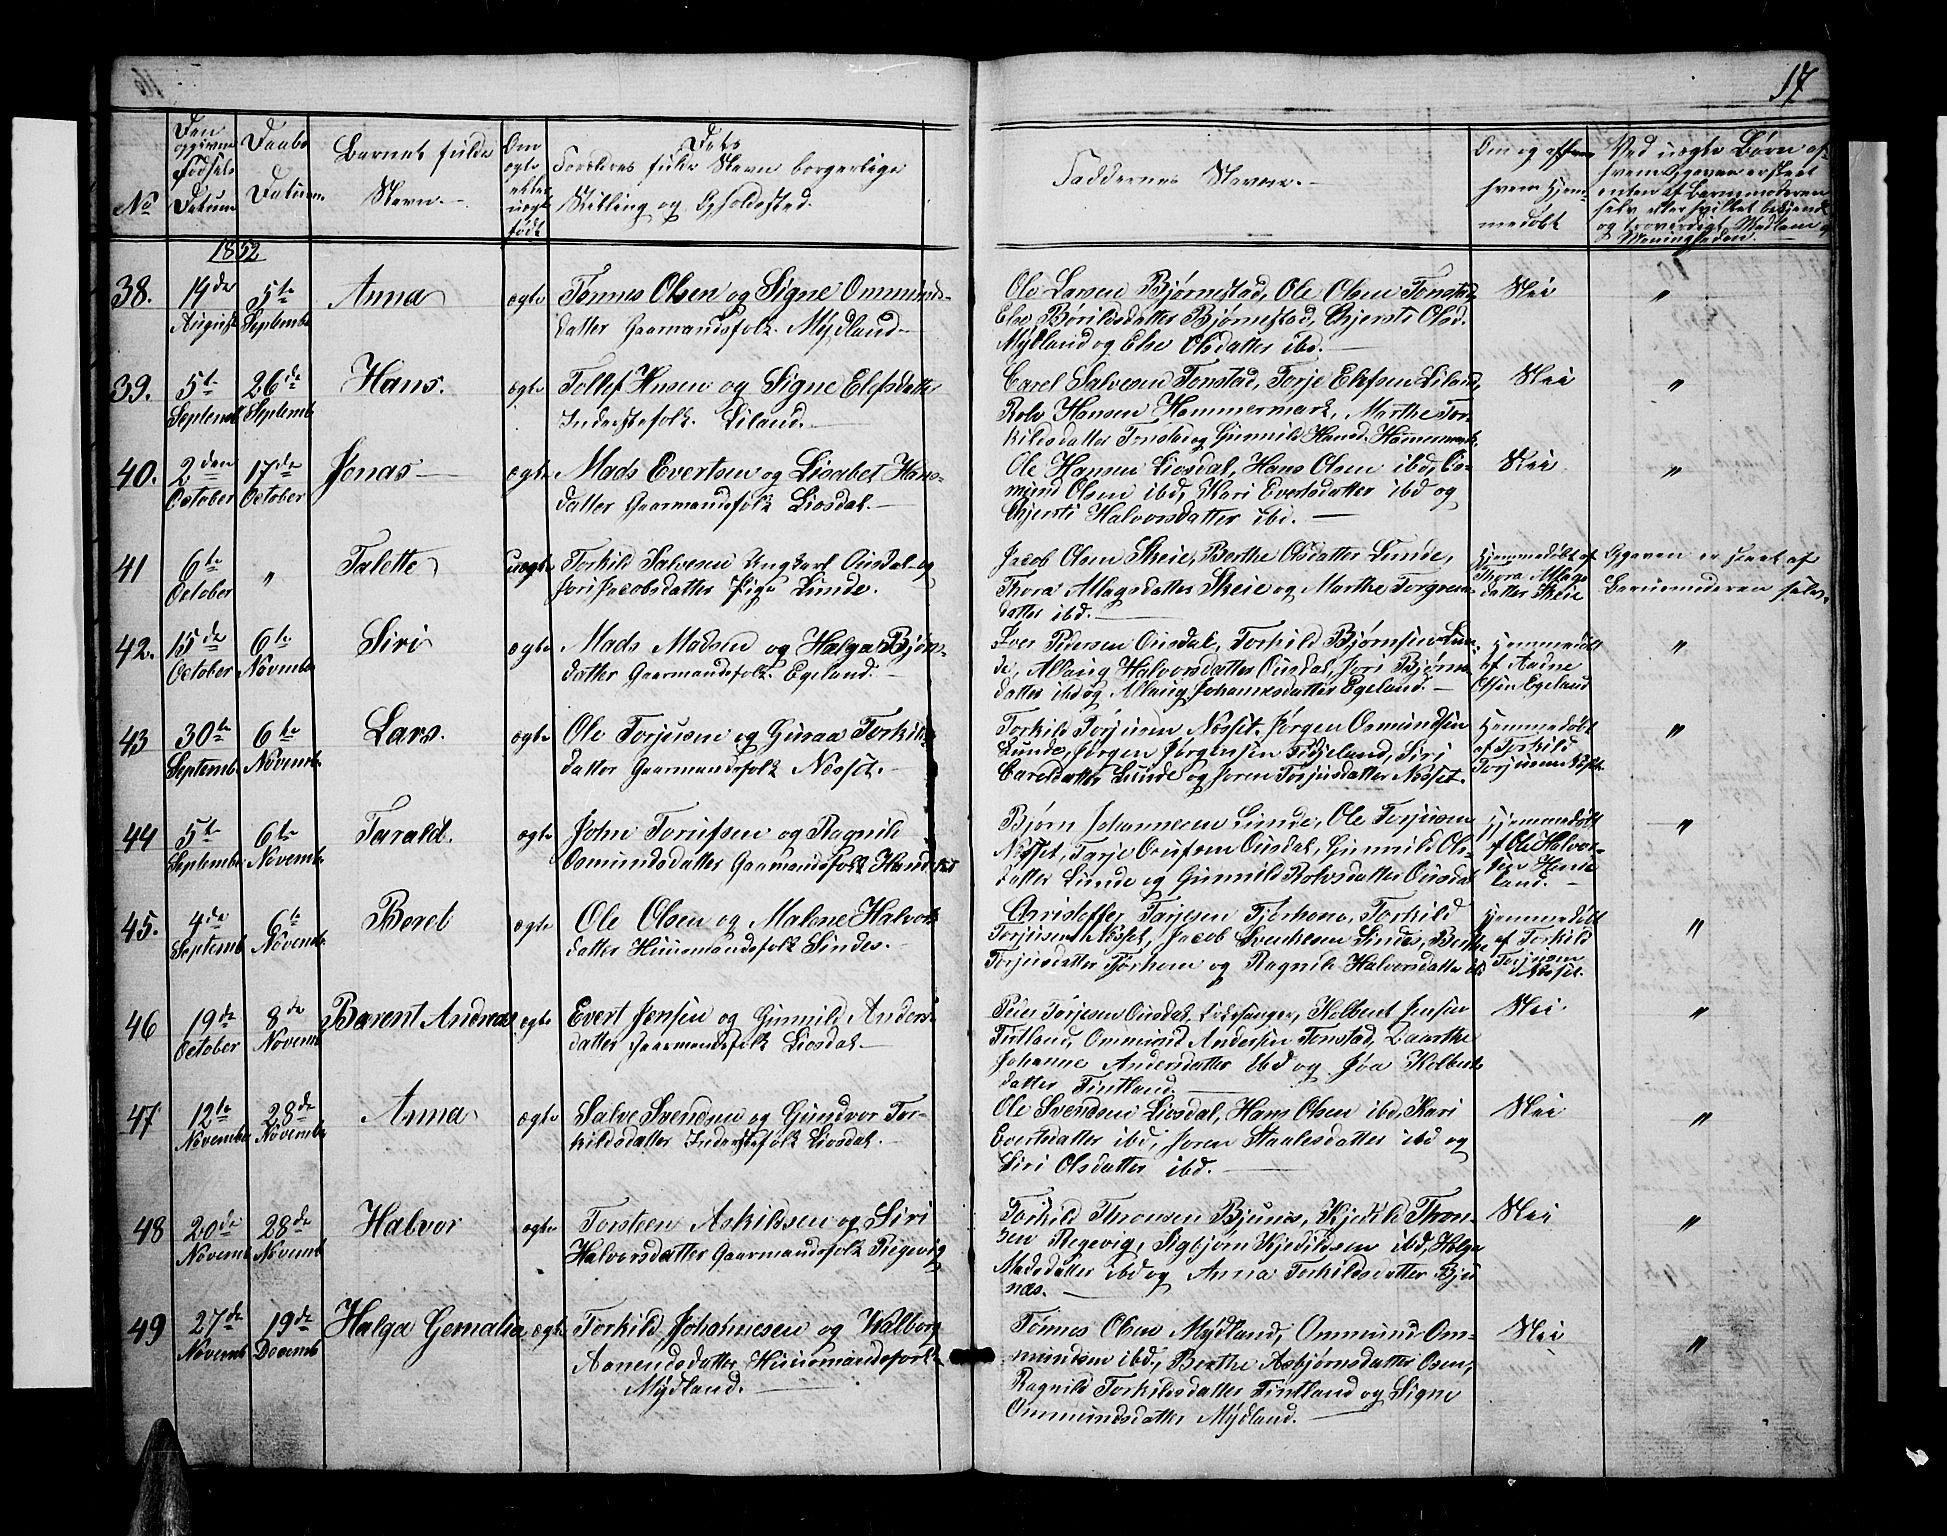 17
No
Den opgivne Fødsels Datum
Daabs Datum
Barnets fulde Navn.
Om ægte eller uægte født
Dets Forældres fulde Navn borgerlige Stilling og Opholdssted.
Faddernes Navne.
Om og af hvem hjemmedøbt
Ved uægte Børn af hvem Opgaven er skeet enten af Barnemoderen selv eller hvilket bekjendt og troværdigt Medlem af Menigheden.
1852
38. 14de August 5te Septembr Anna ægte Tønnes Olsen og Signe Ommunds-
datter Gaarmandsfolk Mydland
Ole Larsen Bjørnestad, Ole Olsen Tonstad,
Else Borildsdatter Bjørnestad, Chjersti Olsd.
Mydland og Else Olsdatter ibd.
Nei "
39. 5te Septembr 26de Septemb Hans. ægte Tollef Hansen og Signe Elefsdatter
Inderstefolk. Liland.
Carel Salvesen Tonstad, Torje Elefsen Liland,
Rolv Hansen Hammermark, Marthe Tor-
kildsdatter Tonstad og Gunnild Hansd. Hamermark.
Nei "
40. 2den October 17de October Jonas ægte Mads Evertsen og Lisabet Hans-
datter Gaarmandsfolk Liosdal.
Ole Hansen Liosdal, Hans Olsen ibd, Os-
mund Olsen ibd, Kari Evertsdatter ibd og
Chjersti Halvorsdatter ibd.
Nei "
41 6te October " Talette uægte Torkild Salvesen Ungkarl Ousdal og
Jori Jacobsdatter Pige Lunde.
Jacob Olsen Skeie, Berthe Olsdatter Lunde,
Thora Atlagsdatter Skeie og Marthe Torgers-
datter ibd.
Hjemmedøbt af
Thora Atlags-
datter Skeie
Opgaven er skeet af
Barnemoderen selv.
42. 15de October 6te Novembr Siri ægte Mads Madsen og Halga Bjørns-
datter Gaarmandsfolk. Egeland.
Iver Pedersen Ousdal, Torkild Bjørnsen Lun-
de, Allaug Halvorsdatter Ousdal, Jori Bjørns-
datter ibd og Allaug Johannesdatter Egeland.
Hjemmedøbt
af Aadne
Olsen Egeland
"
43 30te Septemb 6te Novemb Lars. ægte Ole Torjusen og Guraa Torkilds-
datter Gaarmandsfolk Nesset.
Torkild Torjusen Nesset, Jørgen Osmundsen
Lunde, Jørgen Jørgensen Fidjeland, Siri
Carelsdatter Lunde og Joren Torjusdatter Nesset.
Hjemmedøbt
af Torkild
Torjusen Nesset.
"
44 5te Septembr 6te Novemb Tarald. ægte John Torufsen og Ragnild
Osmundsdatter Gaarmandsfolk
Bjørn Johannesen Lunde, Ole Torjusen
Nesset, Tarje Orufsen Ousdal, Gunnild Ols-
datter Lunde og Gunnild Rolvsdatter Ousdal
Hjemmedøbt
af Ole Halvor-
sen
land.
"
45. 4de Septemb 6te Novemb Beret ægte Ole Olsen og Malene Halvors-
datter Huusmandsfolk Sindes.
Christoffer Tarjesen Tjørhom, Torkild
Torjusen Nesset, Jacob Svenkesen Sindes, Berthe
Torjusdatter Tjørhom og Ragnild Halvorsdatter ibd
Hjemmedøbt
af Torkild
Torjusen
Nesset.
"
46 19de October 8de Novemb Barent Andreas ægte Evert Jensen og Gunnild Anders-
datter Gaarmandsfolk Liosdal
Peder Torjesen Ousdal, Kirkesanger, Kolbent Jensen
Fintland, Ommund Andersen Tonstad,
Johanne Andersdatter ibd og Kolbents-
datter Fintland.
Nei. "
47 12te Novembr 28de Novembr Anna ægte Salve Svendsen og Gundvor Tor-
kildsdatter Inderstefolk Liosdal.
Ole Svendsen Liosdal, Hans Olsen ibd, Kari
Evertsdatter ibd, Joren Staalesdatter ibd og
Siri Olsdatter ibd.
Nei "
48 20de Novemb 28de Novemb Halvor ægte Torsteen Askildsen og Siri
Halvorsdatter Gaarmandsfolk Regevig
Torkild Thronsen Bjunes, Kjetild Thron-
sen Regevig, Sigbjørn Kjetildsen ibd, Helga
Madsdatter ibd og Anna Torkildsdatter Bju-
nes.
Nei "
49 27de Novemb 19de Decemb Halga Gemalia ægte Torkild Johannesen og Walborg
Anensdatter Huusmandsfolk
Mydland.
Tønnes Olsen Mydland, Ommund Om-
mundsen ibd., Berthe Asbjørnsdatter Osen,
Ragnild Torkildsdatter Fintland og Signe
Ommundsdatter Mydland.
Nei "